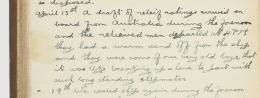 is disposed.
April 13th A draft of relief ratings arrived on
board from Australia during the forenoon
and the relieved men departed at 4 PM
they had a warm send off from the ship
and they were some of our very old boys that
it was like breaking up a home to part with
such long standing shipmates
" 19th we sailed again during the forenoon